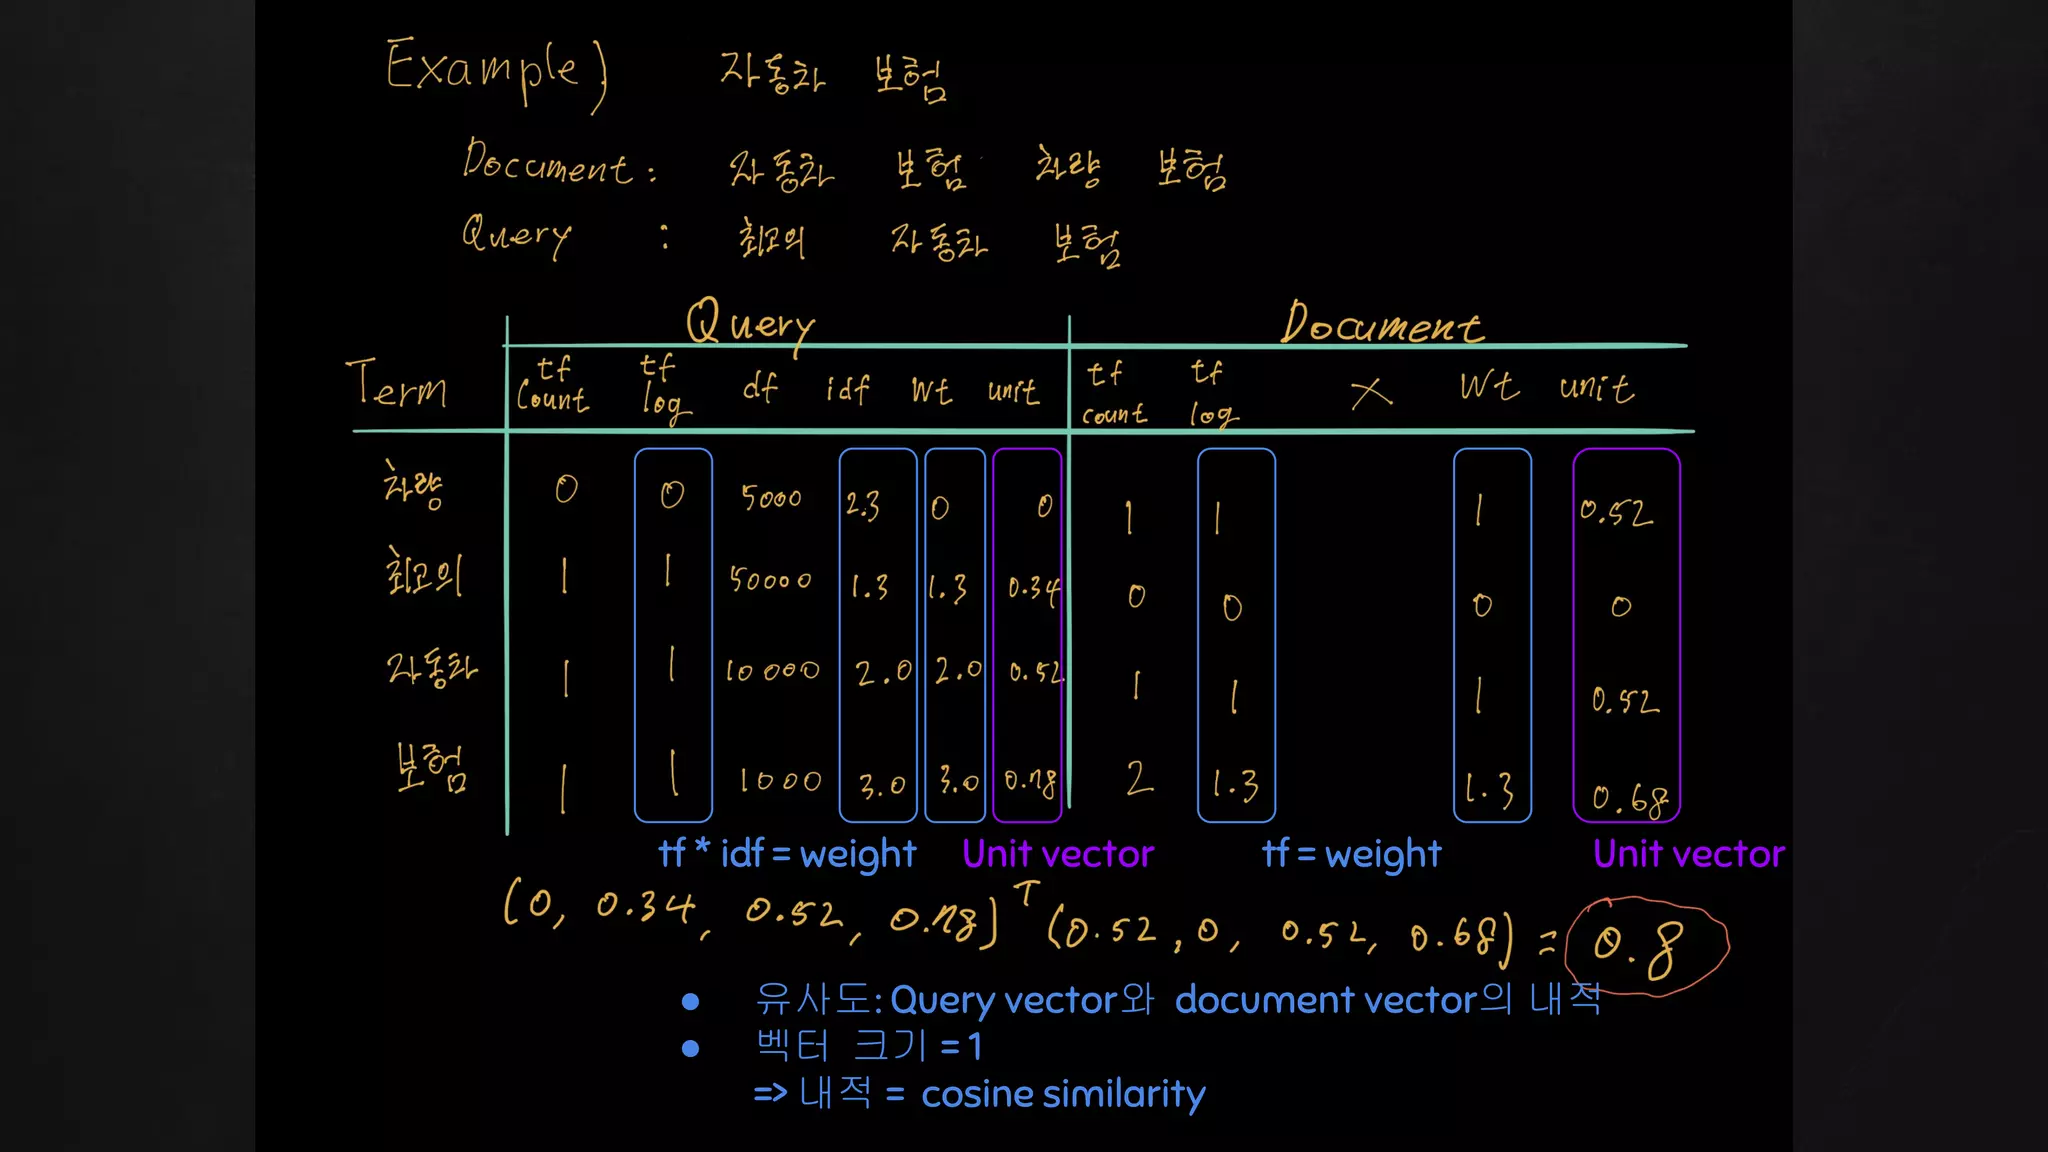 Example) 자동차 보험
Document : 자동차 보험 차량 보험
Query : 최고의 자동차 보험
Query Document
Term tf count tf log df idf Wt unit tf count tf log X Wt unit
차량 0 0 5000 2.3 0 0 1 1 1 0.52
최고의 1 1 50000 1.3 1.3 0.34 0 0 0 0
자동차 1 1 10000 2.0 2.0 0.52 1 1 1 0.52
보험 1 1 1000 3.0 3.0 0.78 2 1.3 1.3 0.68
tf * idf = weight Unit vector tf = weight Unit vector
(0, 0.34, 0.52, 0.78)ᵀ (0.52, 0, 0.52, 0.68) = 0.8
● 유사도: Query vector와 document vector의 내적
● 벡터 크기 = 1
=> 내적 = cosine similarity